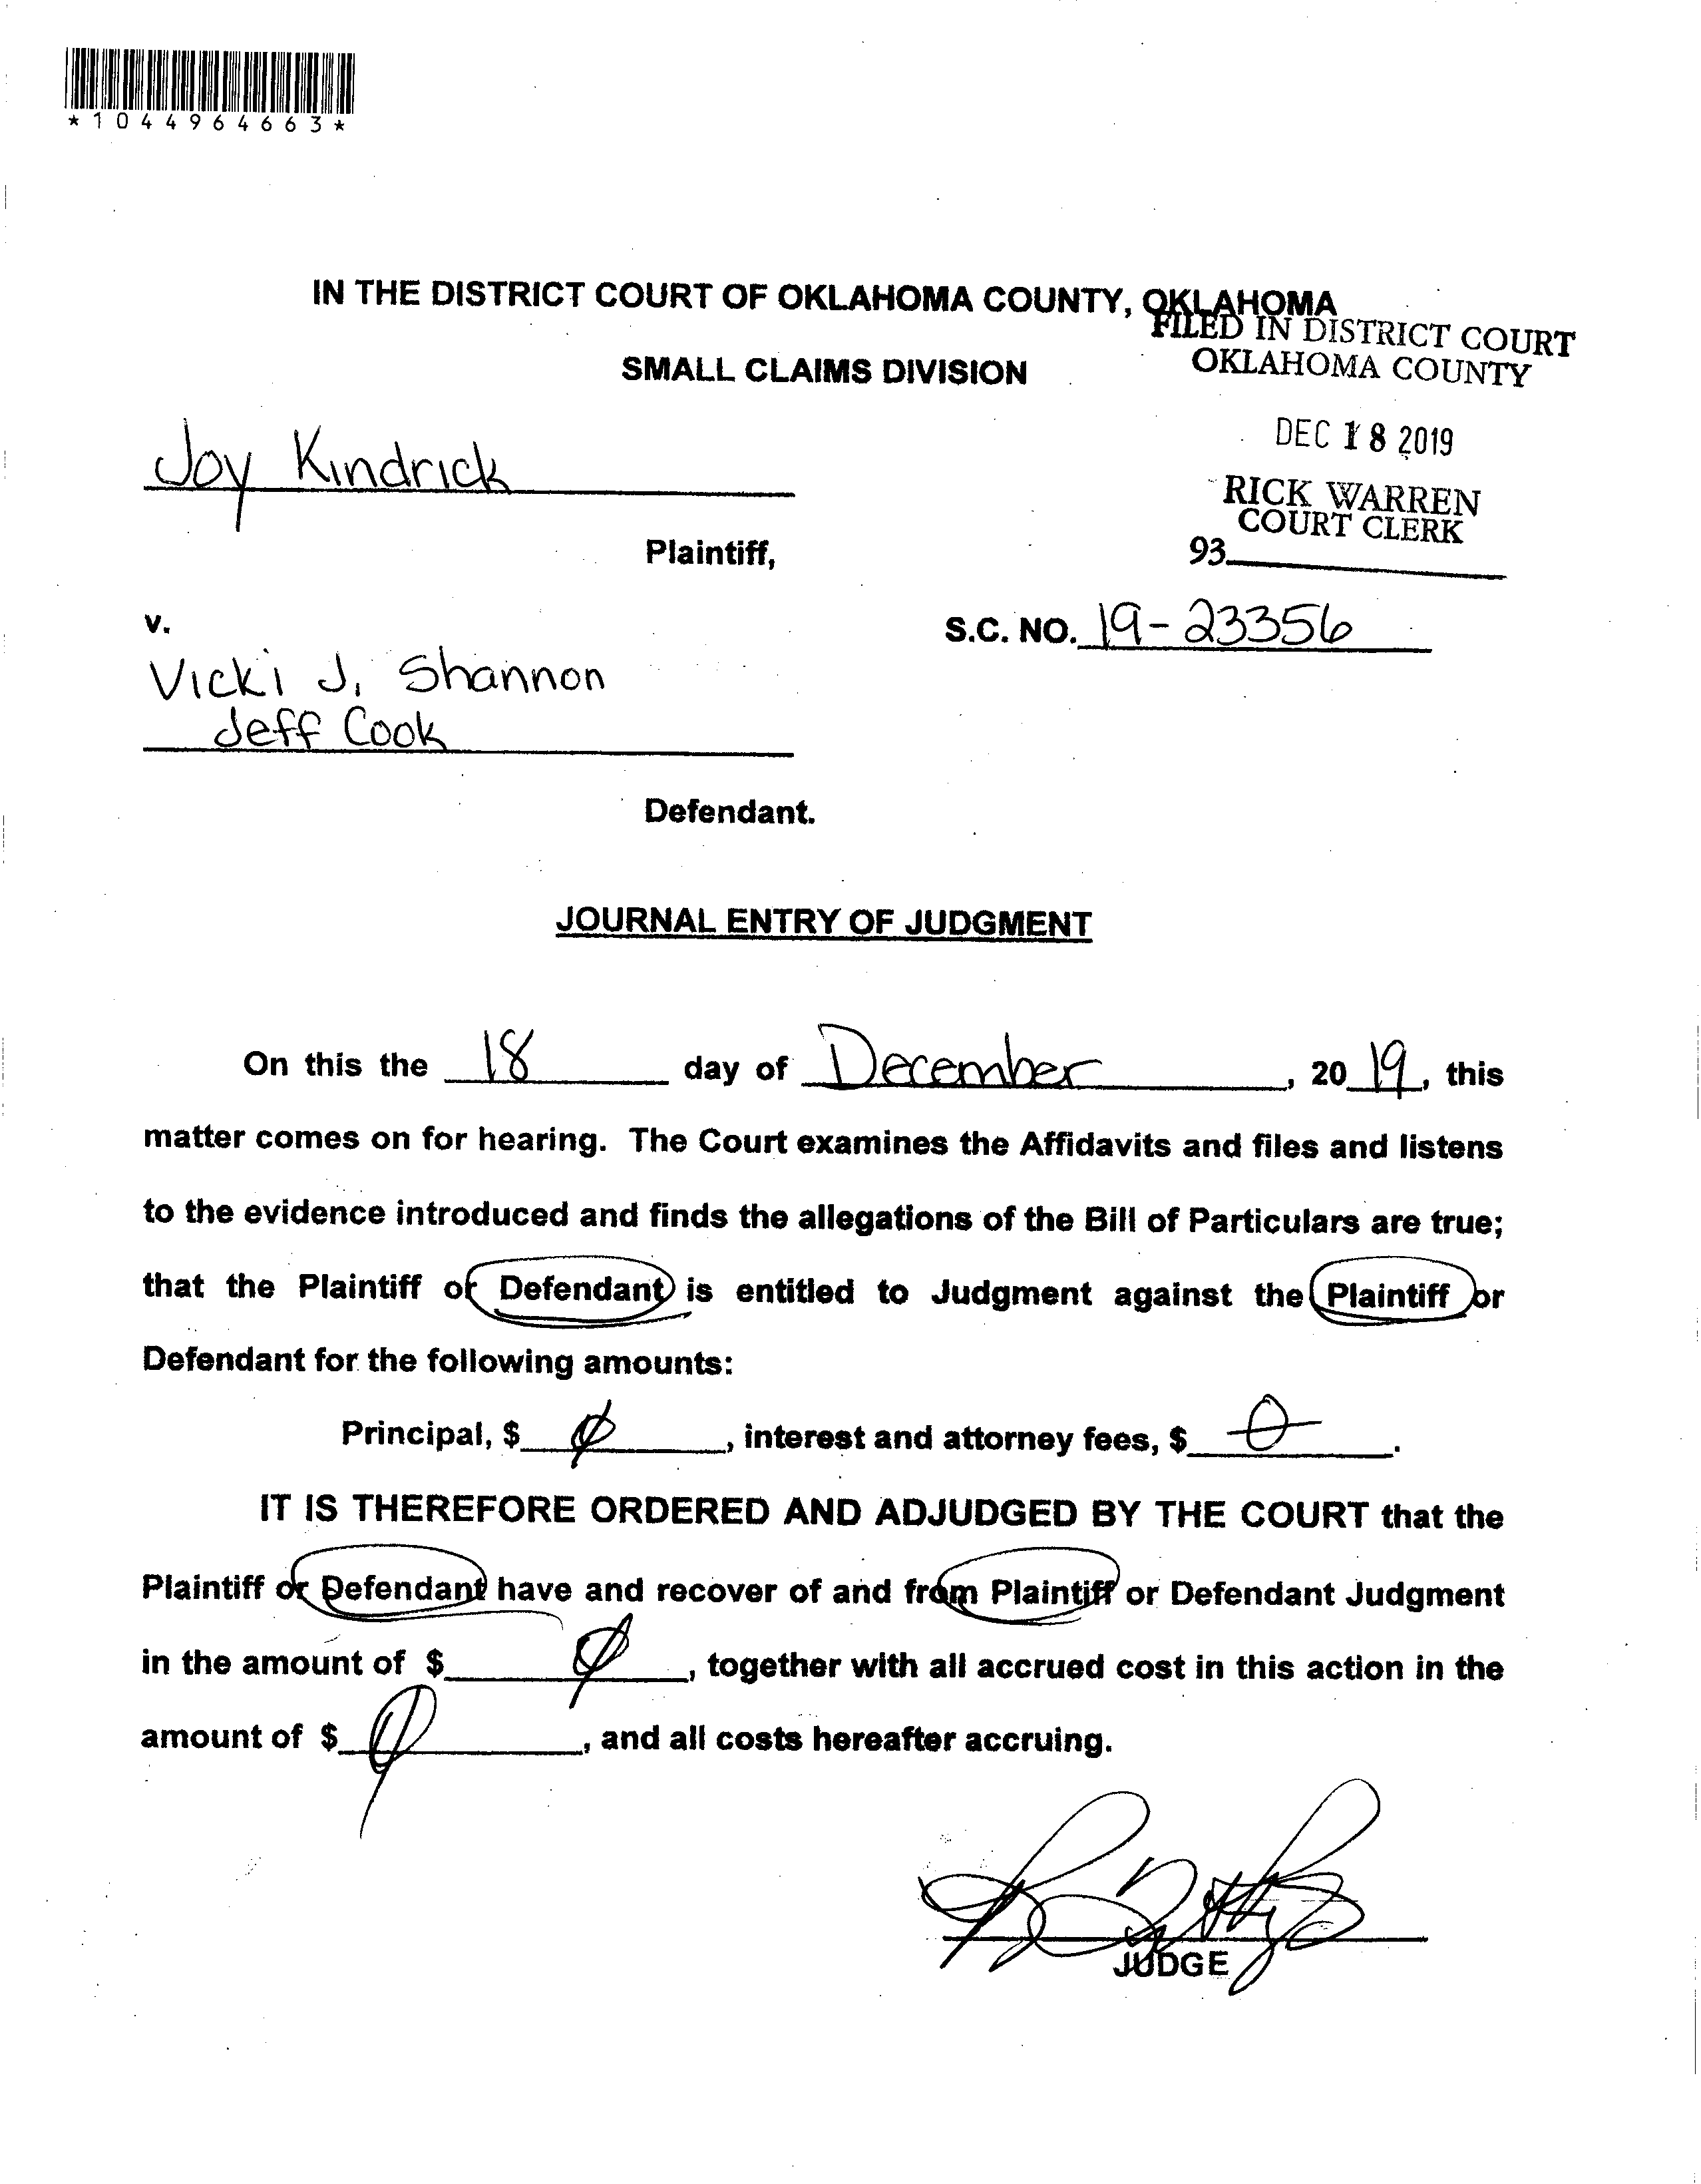 *1044964663*
IN THE DISTRICT COURT OF OKLAHOMA COUNTY, OKLAHOMA
FILED IN DISTRICT COURT
OKLAHOMA COUNTY
SMALL CLAIMS DIVISION
DEC 18 2019
Joy Kindrick
RICK WARREN
COURT CLERK
Plaintiff,
93
v.
S.C. NO. 19-23356
Vicki J. Shannon
Jeff Cook
Defendant.
JOURNAL ENTRY OF JUDGMENT
On this the 18 day of December, 2019, this
matter comes on for hearing. The Court examines the Affidavits and files and listens
to the evidence introduced and finds the allegations of the Bill of Particulars are true;
that the Plaintiff or Defendant is entitled to Judgment against the Plaintiff or
Defendant for the following amounts:
Principal, $ 0, interest and attorney fees, $ 0.
IT IS THEREFORE ORDERED AND ADJUDGED BY THE COURT that the
Plaintiff or Defendant have and recover of and from Plaintiff or Defendant Judgment
in the amount of $ 0, together with all accrued cost in this action in the
amount of $ 0, and all costs hereafter accruing.
JUDGE